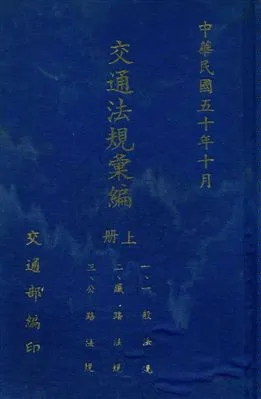 中華民國五十年十月
交通法規彙編
上冊
一、一般法規
二、鐵路法規
三、公路法規
交通部編印